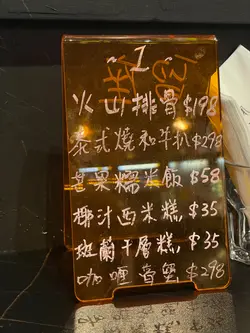 1
火山排骨$198
泰式燒和牛扒$298
芒果糯米飯$58
椰汁西米糕$35
班蘭千層糕,$35
咖喱膏蟹$298